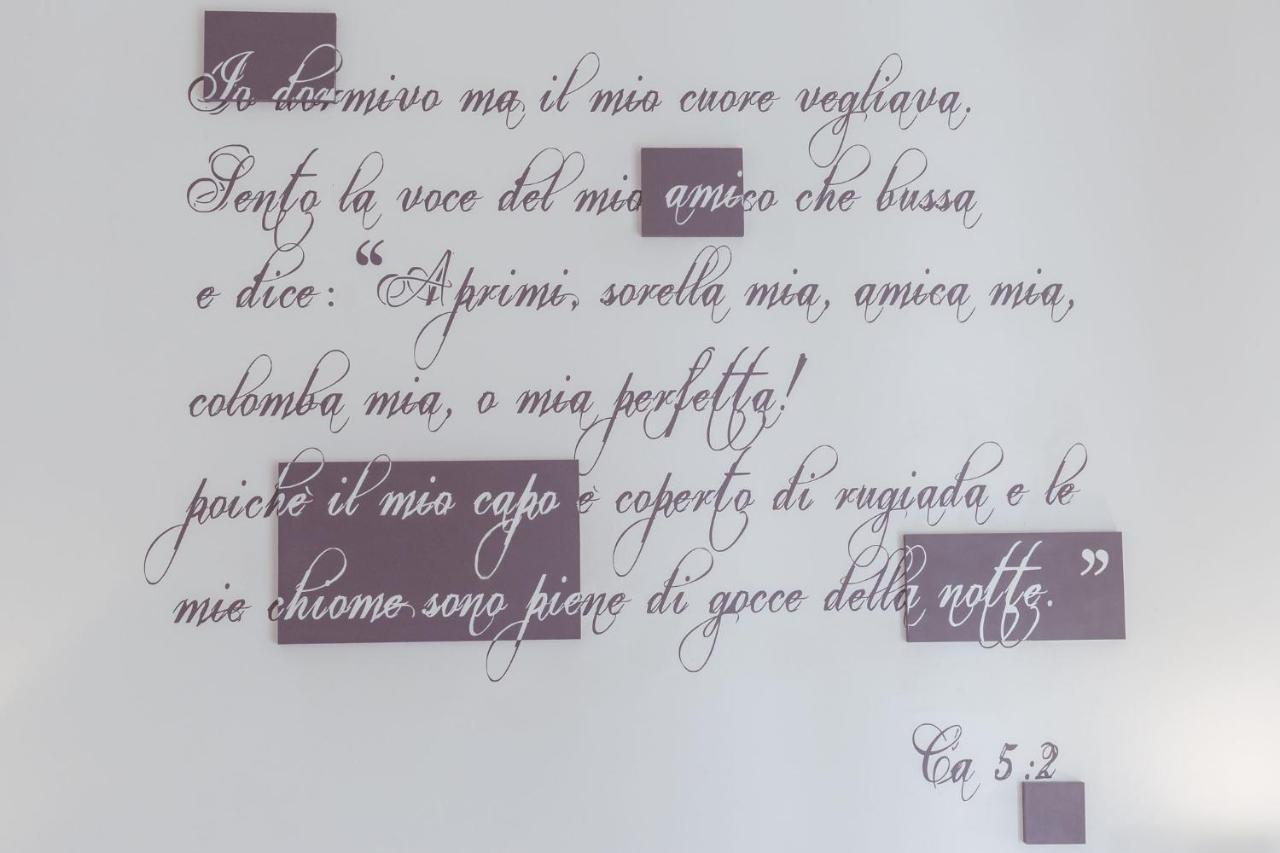 Io dormivo ma il mio cuore vegliava.
Sento la voce del mio amico che bussa
e dice: “Aprimi, sorella mia, amica mia,
colomba mia, o mia perfetta!
poichè il mio capo è coperto di rugiada e le
mie chiome sono piene di gocce della notte.”
Ca 5:2